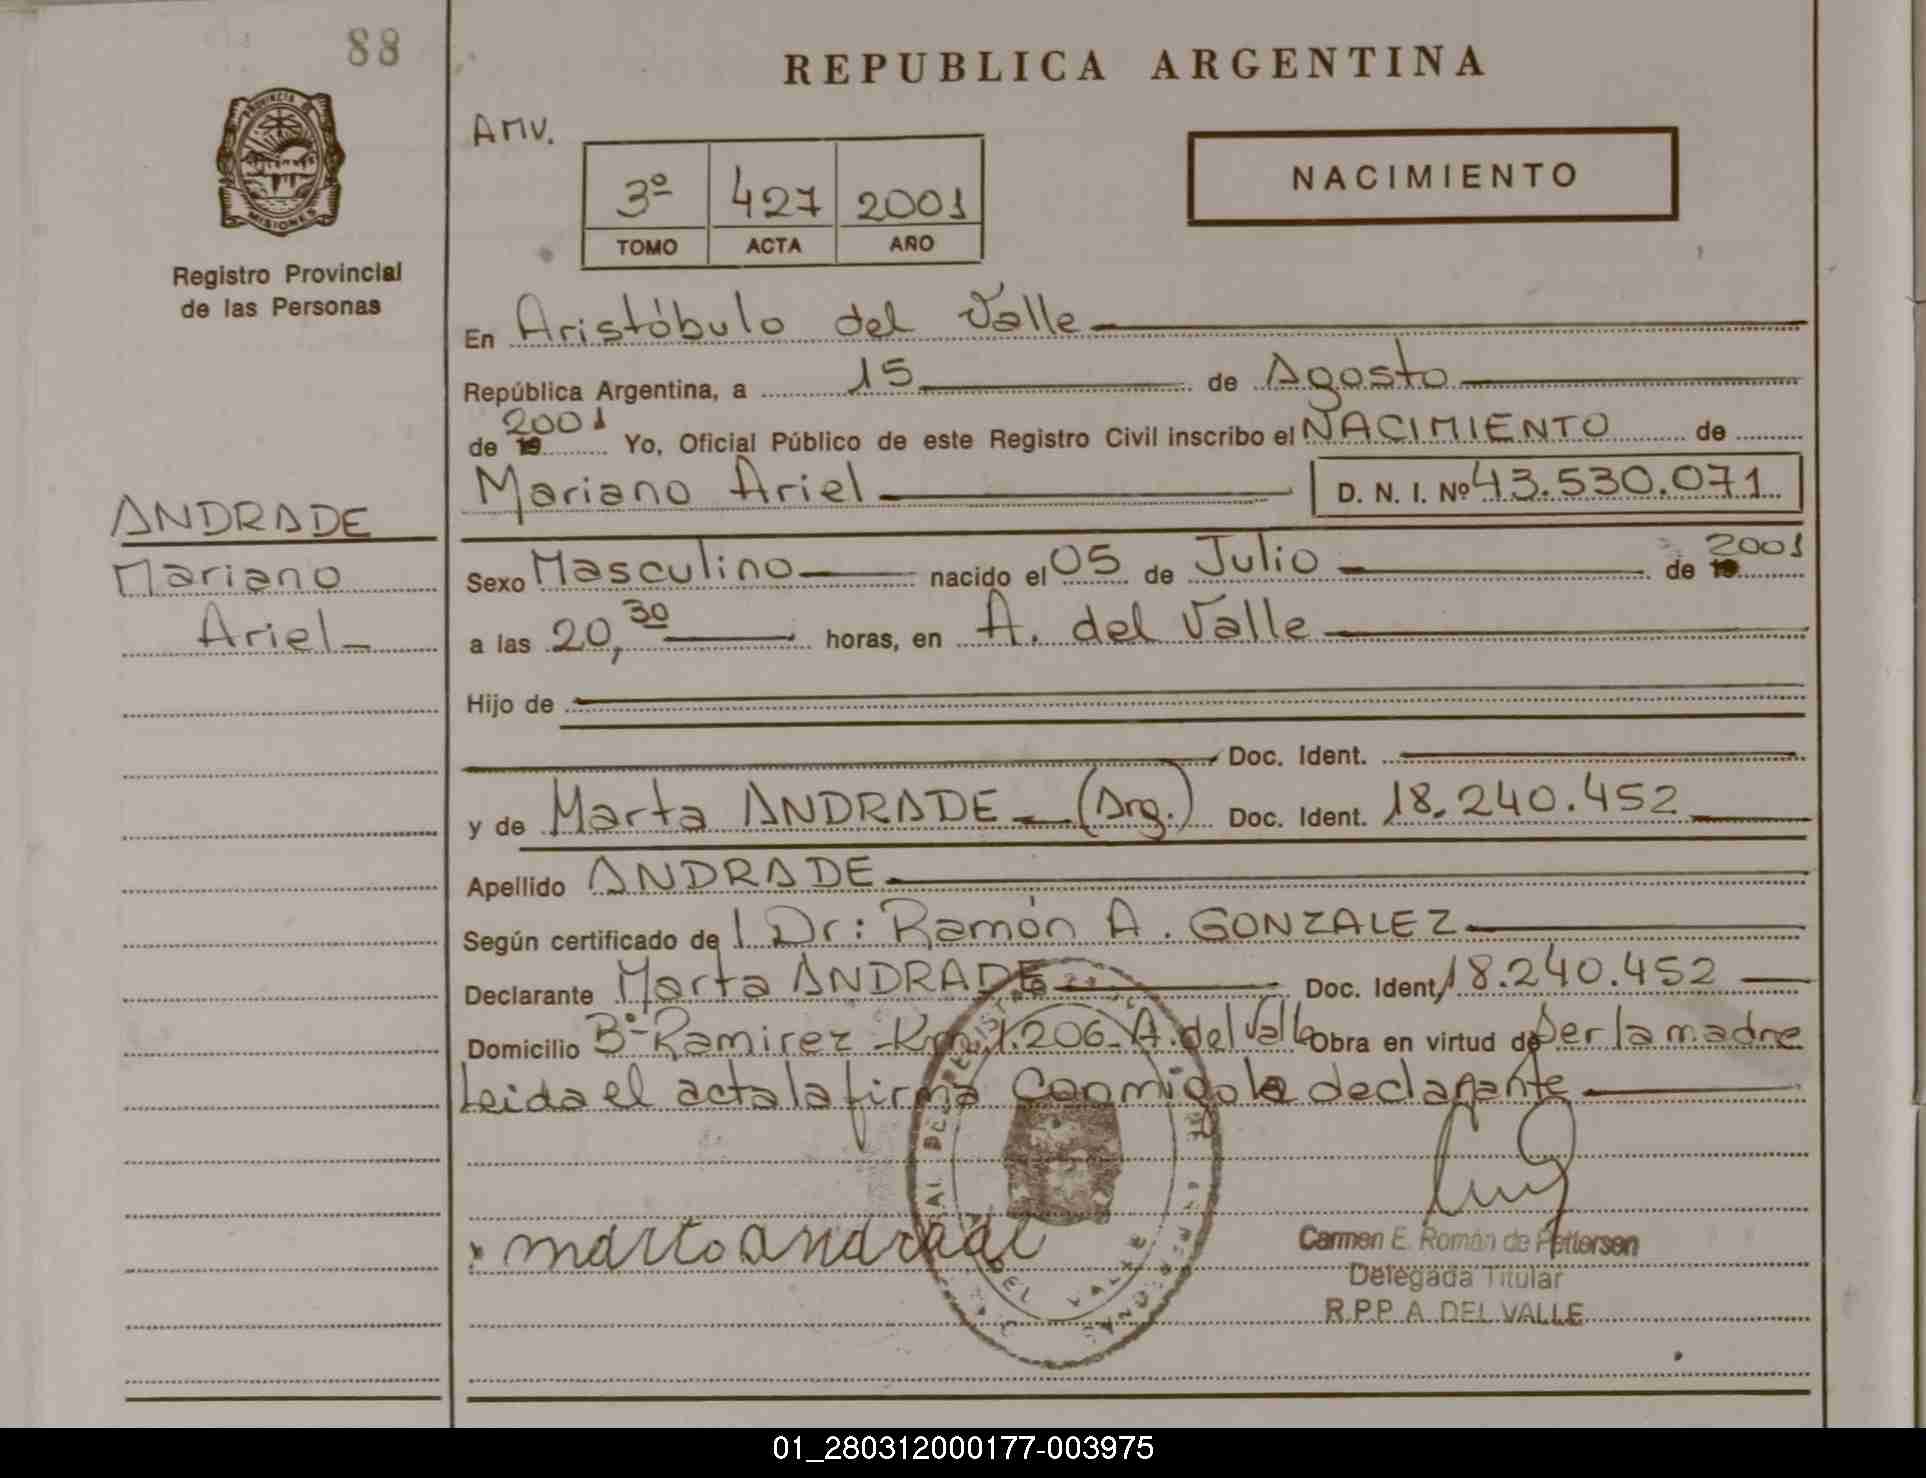 88
REPUBLICA ARGENTINA
PROVINCIA DE
MISIONES
Registro Provincial
de las Personas
AMV.
3º 427 2001
TOMO ACTA AÑO
NACIMIENTO
En Aristóbulo del Valle
República Argentina, a 15 de Agosto
de 19 2001 Yo, Oficial Público de este Registro Civil inscribo el NACIMIENTO de
Mariano Ariel D. N. I. Nº 43.530.071
ANDRADE
Mariano
Ariel
Sexo Masculino nacido el 05 de Julio de 19 2001
a las 20,30 horas, en A. del Valle
Hijo de
Doc. Ident.
y de Marta ANDRADE (Arg.) Doc. Ident. 18.240.452
Apellido ANDRADE
Según certificado de Dr: Ramón A. GONZALEZ
Declarante Marta ANDRADE Doc. Ident. 18.240.452
Domicilio Bº Ramirez - Km. 1.206 - A. del Valle Obra en virtud de ser la madre
Leida el acta la firma conmigo la declarante
marta andrade
Carmen E. Román de Pettersen
Delegada Titular
R.P.P. A. DEL VALLE
DEL VALLE
01_280312000177-003975